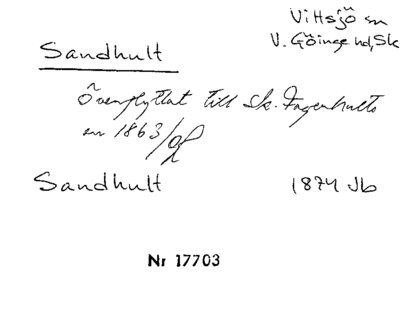 Vittsjö sn
V. Göinge hd, Sk
Sandhult
överflyttat till Sk. Fagerhults
sn 1863
Sandhult 1874 Jb
Nr 17703